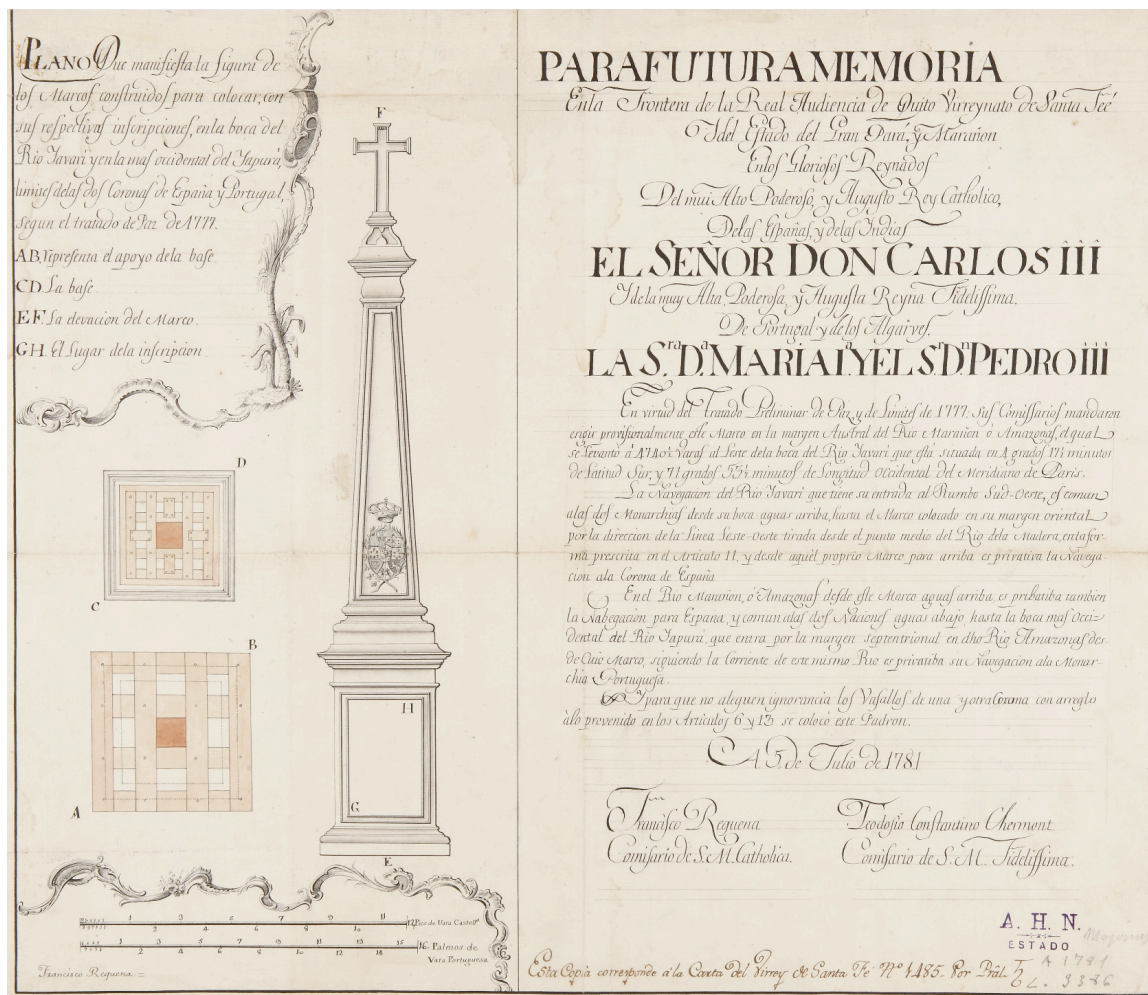 PLANO Que manifiesta la figura de
los Marcos construidos para colocar, con
sus respectivas inscripciones, en la boca del
Rio Yavarí y en la mas occidental del Yapurá,
limites de las dos Coronas de España y Portugal,
segun el tratado de Paz de 1777.
AB. representa el apoyo de la base.
CD. La base.
EF. La elevacion del Marco.
GH. El Lugar de la inscripcion.
F
D
C
B
A
H
G
E
1 3 5 7 9 11
2 4 6 8 10
12 Pies de Vara Castellª
1 3 5 7 9 11 13 15
2 4 6 8 10 12 14
16 Palmos de
Vara Portuguesa
Francisco Requena =
PARA FUTURA MEMORIA
En la Frontera de la Real Audiencia de Quito Virreynato de Santa Feé
Y del Estado del Gran Pará, y Marañon
En los Gloriosos Reynados
Del mui Alto Poderoso, y Augusto Rey Catholico,
De las Españas, y de las Indias
EL SEÑOR DON CARLOS III
Y de la muy Alta, Poderosa, y Augusta Reyna Fidelissima.
De Portugal y de los Algarves.
LA S.ra D.a MARIA I.a Y EL S.r D.n PEDRO III
En virtud del Tratado Preliminar de Paz, y de Limites de 1777. Sus Comissarios mandaron
erigir provisionalmente este Marco en la margen Austral del Rio Marañon ò Amazonas, el qual
se levantò à 4740½ Varas al Leste de la boca del Rio Yavarí que está situada en 4 grados 17½ minutos
de Latitud Sur, y 71 grados 53½ minutos de Longitud Occidental del Meridiano de Paris.
La Navegacion del Rio Yavarí que tiene su entrada al Rumbo Sud-Oeste, es comun
a las dos Monarchias desde su boca aguas arriba, hasta el Marco colocado en su margen oriental
por la direccion de la Linea Leste-oeste tirada desde el punto medio del Rio de la Madera, enta for-
ma prescrita en el Articulo 11, y desde aquél proprio Marco, para arriba es privativa la Navega-
cion a la Corona de España
En el Rio Marañon, ò Amazonas desde este Marco aguas arriba, es pribatiba tambien
la Nabegacion para España, y comun a las dos Naciones aguas abajo, hasta la boca mas Occi-
dental del Rio Yapurá, que entra por la margen septentrional en dho Rio Amazonas des-
de Cuio Marco, siguiendo la Corriente de este mismo Rio es privatiba su Navegacion a la Monar-
chia Portuguesa.
Y para que no aleguen ignorancia los Vasallos de una y otra Corona con arreglo
à lo prevenido en los Articulos 6 y 13 se colocó este Padron.
A 5. de Julio de 1781
Francisco Requena
Comisario de S. M. Catholica.
Teodosio Constantino Chermont
Comisario de S. M. Fidelissima.
A. H. N.
ESTADO
A 1781
L. 3386
Esta Copia corresponde à la Carta del Virrey de Santa Fé Nº 1485. Por Prâl.